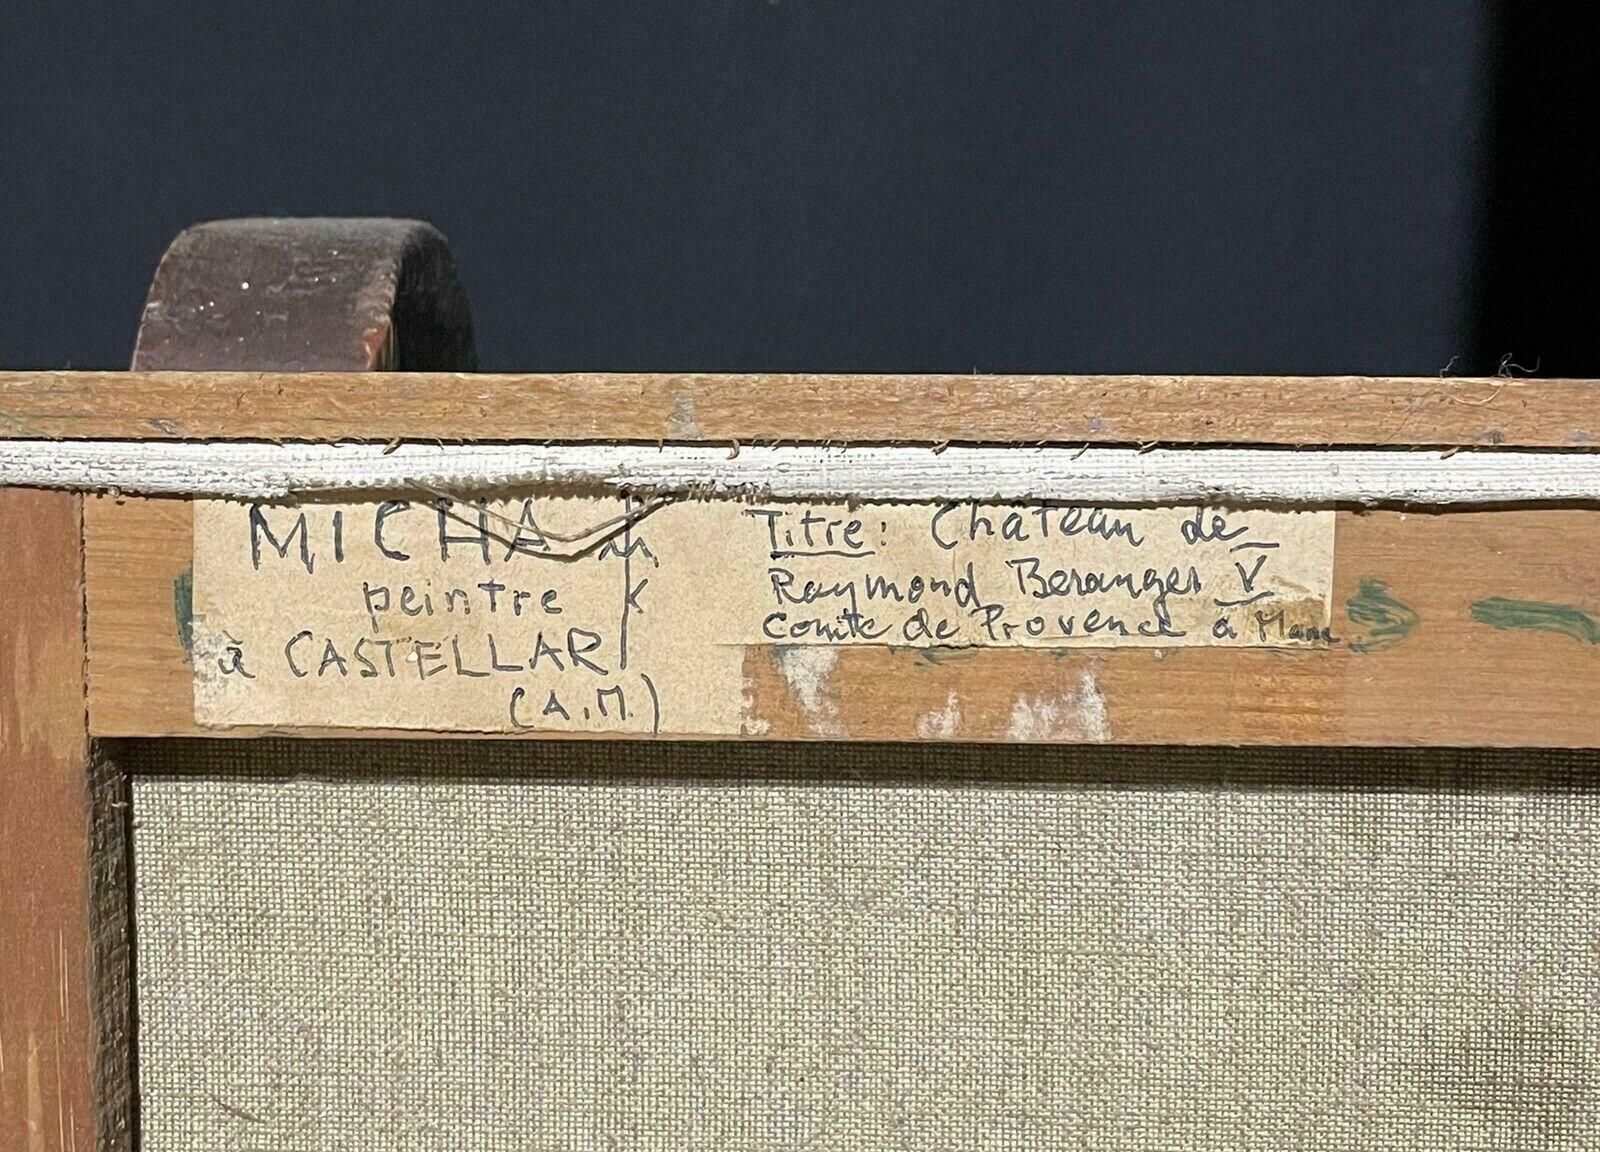 MICHA
peintre
à CASTELLAR
(A.M.)
Titre: Château de
Raymond Beranger V
Comte de Provence à Mane